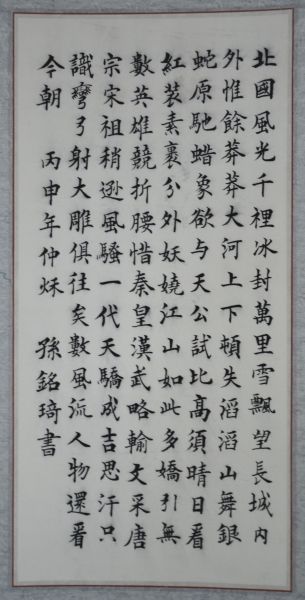 北國風光千裡冰封萬里雪飄望長城内
外惟餘莽莽大河上下頓失滔滔山舞銀
蛇原馳蜡象欲与天公試比高須晴日看
紅装素裹分外妖嬈江山如此多嬌引無
數英雄競折腰惜秦皇漢武略輸文采唐
宗宋祖稍逊風騷一代天驕成吉思汗只
識彎弓射大雕俱往矣數風流人物還看
今朝 丙申年仲秋 孫銘琦書